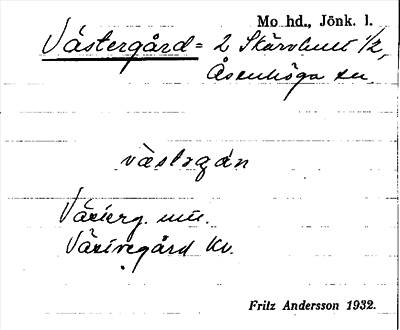 Mo hd., Jönk. l.
Västergård = 2 Skärvhult 1/2,
Åsenhöga sn.
västᶉgan
Västerg. mtl.
Västregård kv.
Fritz Andersson 1932.